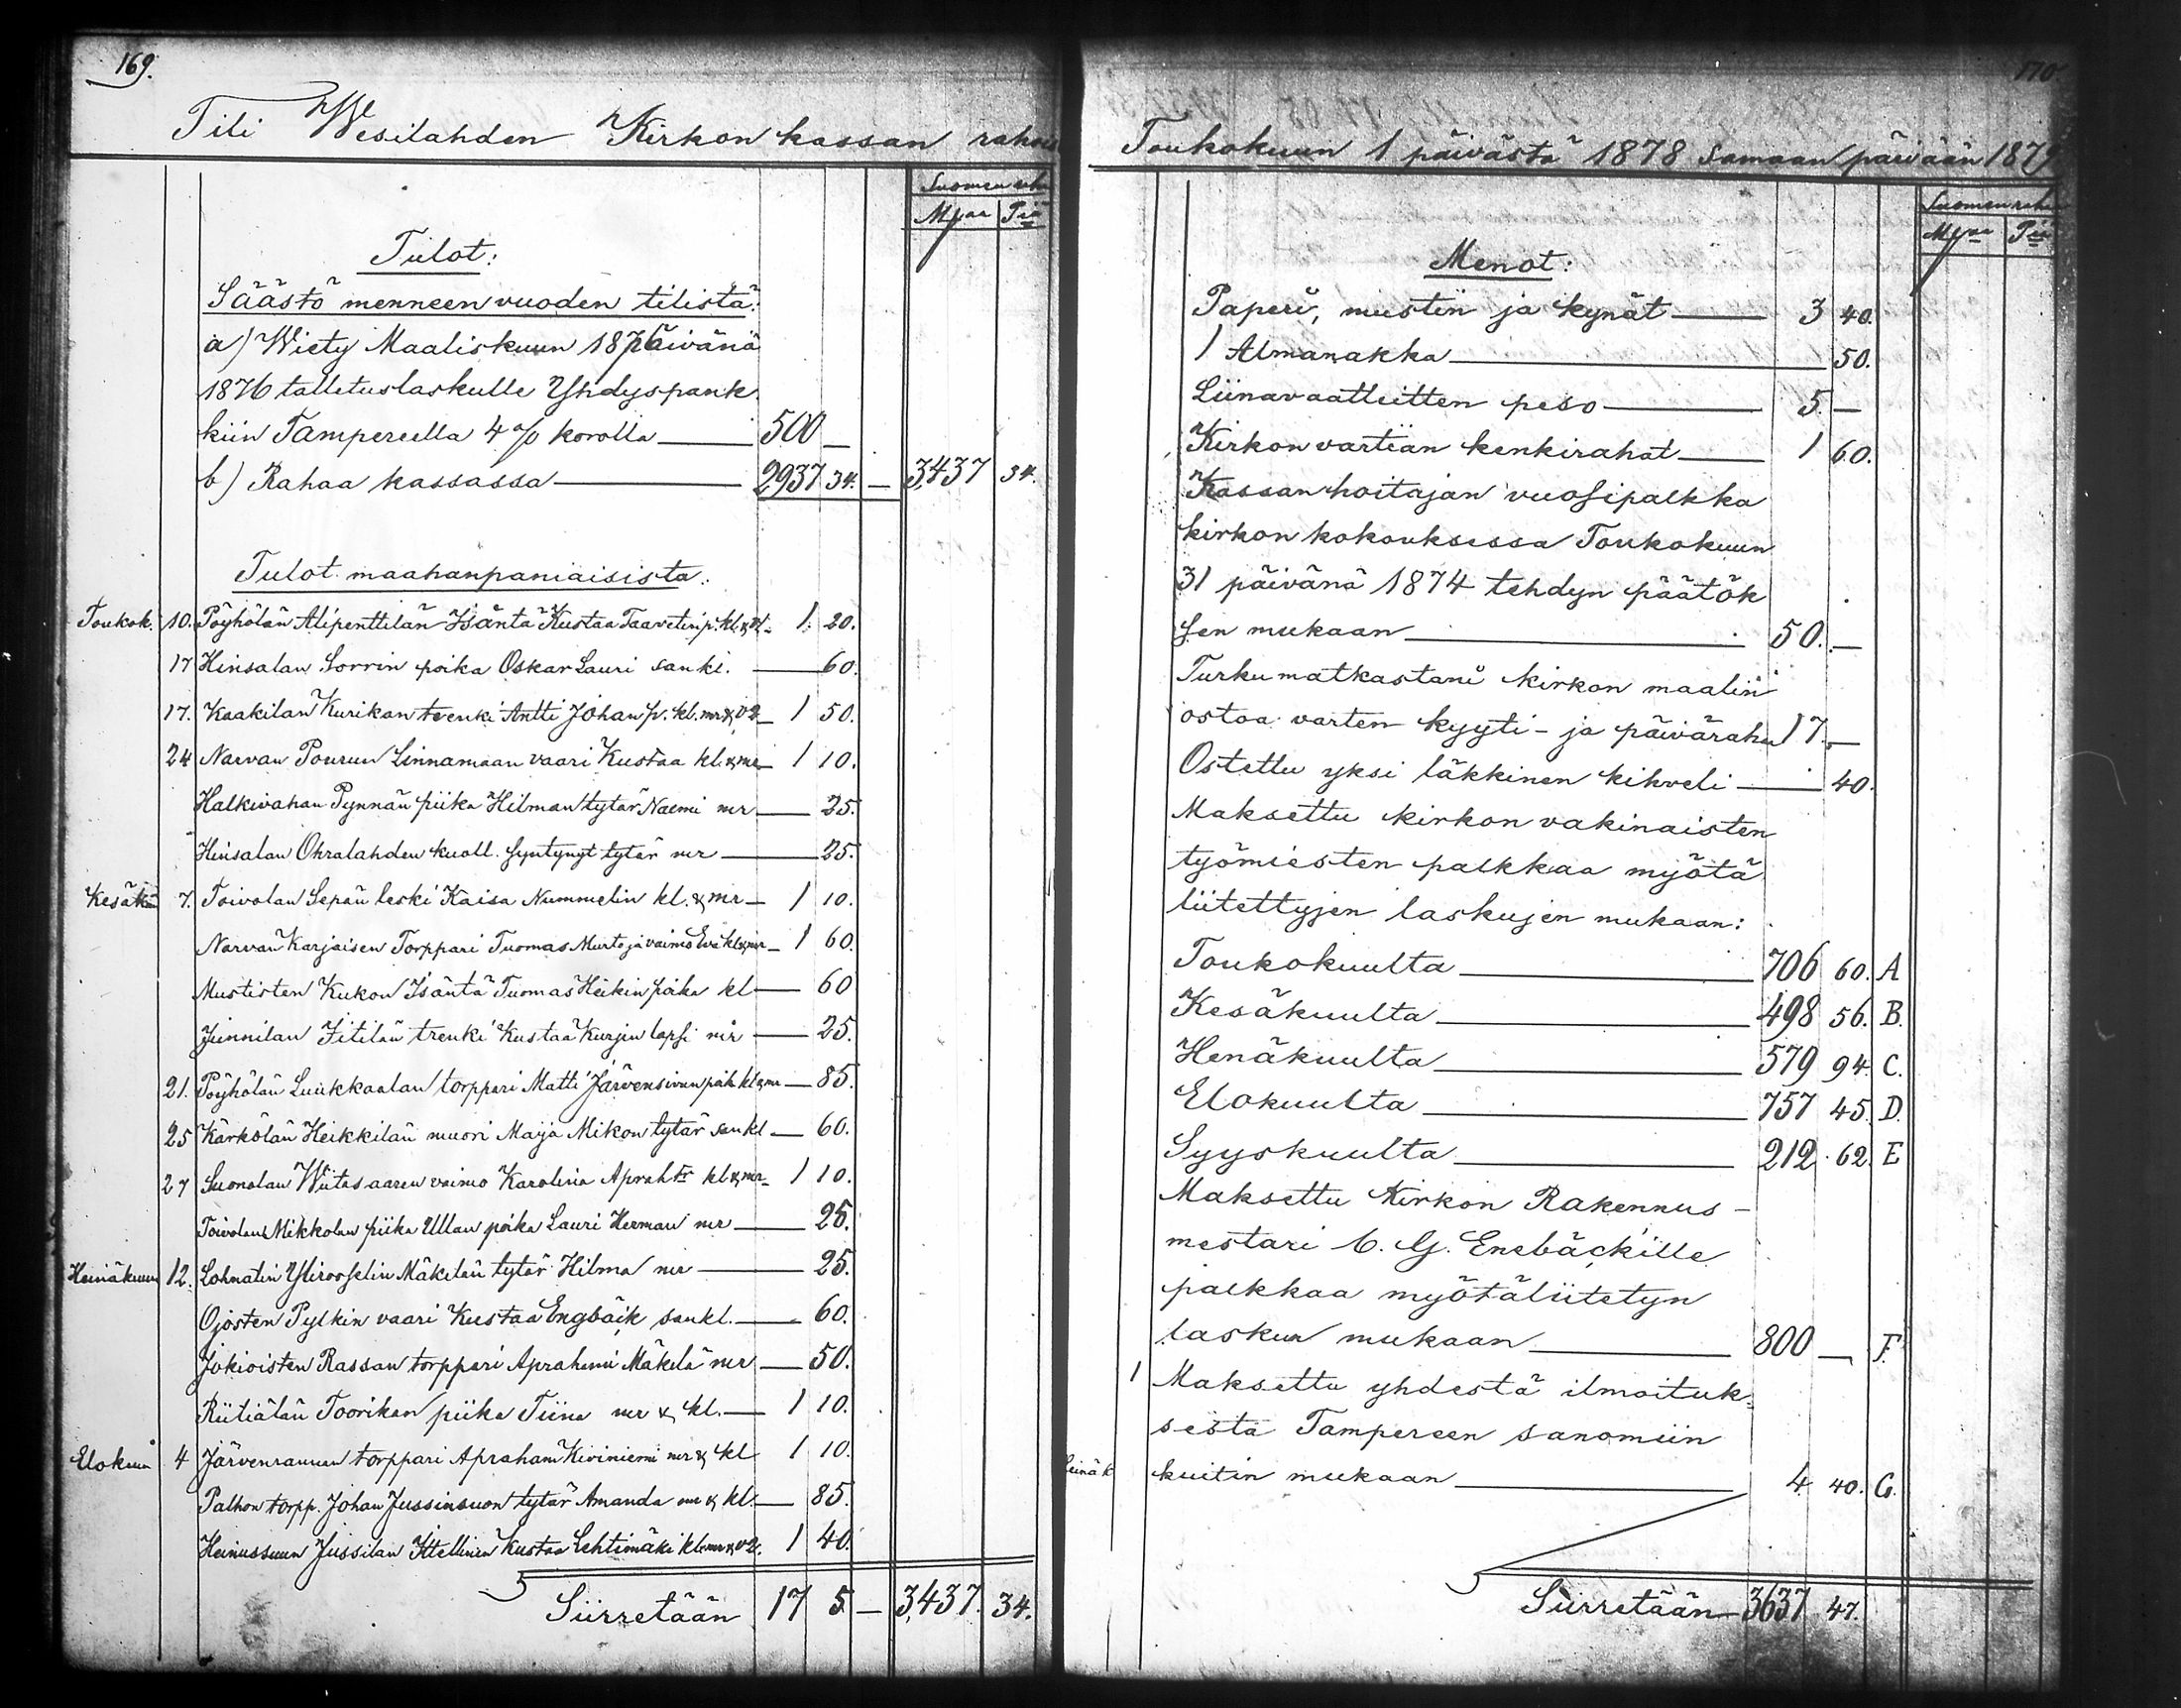 169.
Tili Wesilahden Kirkon kassan rahois
Suomen raha
Mkaa Piä
Tulot:
Säästö menneen vuoden tilistä:
a) Wiety Maaliskuun 18 päivänä
1876 talletuslaskulle Yhdyspank
kiin Tampereella 4% korolla — 500 —
b) Rahaa kassassa — 2937 34. — 3,437 34.
Tulot maahanpaniaisista:
Toukok. 10. Pöyhölän Alipenttilän Isäntä Kustaa Taavetin p. kl. & — 1. 20.
17 Hinsalan Sorrin poika Oskar Lauri san kl. — 60.
17. Kaakilan Kurikan trenki Antti Johan p. kl. mr & v2 — 1 50.
24 Narvan Pourun Linnamaan vaari Kustaa kl. & mr — 1 10.
Halkivahan Pynnän piika Hilman tytär Naemi mr — 25.
Hinsalan Ohralahden kuoll. syntynyt tytär mr — 25.
Kesäk. 7. Toivolan Sepän leski Kaisa Nummelin kl. & mr — 1 10.
Narvan Karjaisen Torppari Tuomas Murto ja vaimo Eva kl & mr — 1 60.
Mustisten Kukon Isäntä Tuomas Heikin poika kl — 60
Junnilan Iitilän trenki Kustaa Kurjen lapsi mr — 25.
21. Pöyhölän Luukkaalan torppari Matti Järvensivun poik. kl & mr — 85.
25 Kärkölän Heikkilän muori Maija Mikon tytär san kl — 60.
27 Suonolan Wiitasaaren vaimo Karolina Aprah. tr kl & mr — 1 10.
Toivolan Mikkolan piika Ullan poika Lauri Herman mr — 25.
Heinäkuun 12. Lohnatin Yliroosselin Mäkelän tytär Hilma mr — 25.
Ojosten Pylkin vaari Kustaa Engbäik san kl. — 60.
Jokioisten Rassan torppari Aprahami Mäkelä mr — 50.
Riitiälän Toorikan piika Tiina mr & kl. — 1 10.
Elokuun 4 Järvenrannan torppari Apraham Kiviniemi mr & kl 1 10.
Palhon torpp. Johan Jussinsuon tytär Amanda mr & kl. — 85.
Heinussuun Jussilan Ittellinen Kustaa Lehtimäki kl. mr & v2. 1 40.
Siirretään 17 5 — 3,437. 34.
170.
Toukokuun 1 päivästä 1878 samaan päivään 1879
Suomen raha
Mkaa Piä
Menot:
Paperi, mustin ja kynät — 3 40.
1 Almanakka — 50.
Liinavaatteitten peso — 5. —
Kirkon vartian kenkirahat — 1 60.
Kassanhoitajan vuosipalkka
kirkon kokouksessa Toukokuun
31 päivänä 1874 tehdyn päätök
sen mukaan — 50. —
Turku matkastani kirkon maalin
ostoa varten kyyti- ja päiväraha 17. —
Ostettu yksi läkkinen kihveli — 40.
Maksettu kirkon vakinaisten
työmiesten palkkaa myötä
liitettyjen laskujen mukaan:
Toukokuulta — 706 60. A
Kesäkuulta — 498 56. B.
Henäkuulta — 579 94. C.
Elokuulta — 757 45. D.
Syyskuulta — 212 62. E
Maksettu Kirkon Rakennus-
mestari C. G. Enebäck'ille
palkkaa myötäliitetyn
laskun mukaan — 800 — F.
1 Maksettu yhdestä ilmoituk
sesta Tampereen sanomiin
Heinäk kuitin mukaan — 4 40. G.
Siirretään — 3637 47.